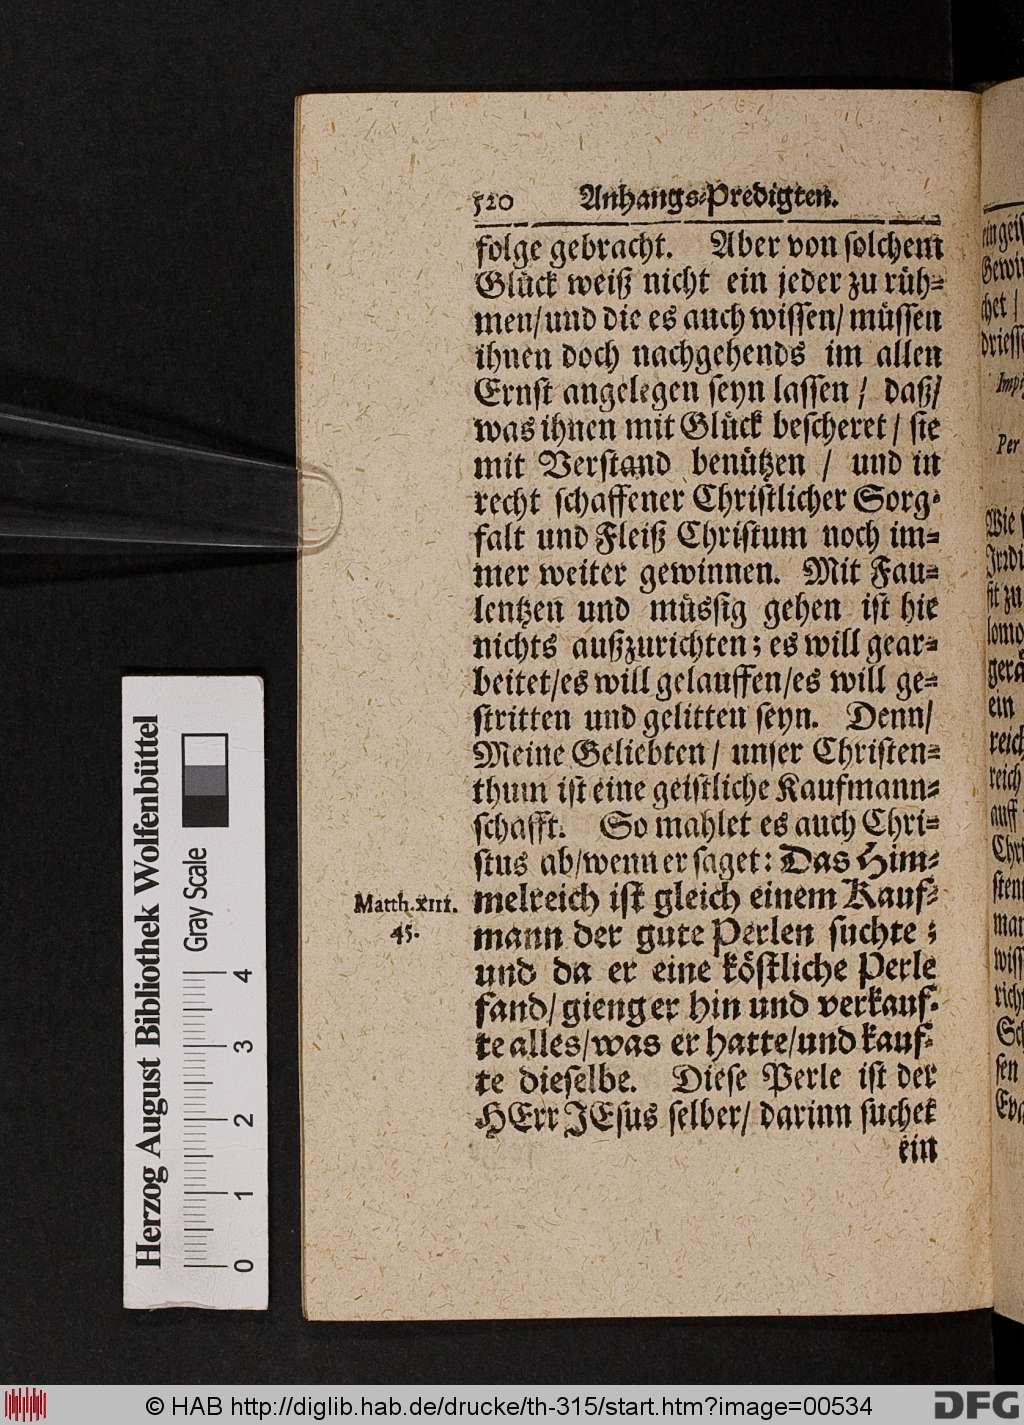 520 Anhangs-Predigten.
folge gebracht. Aber von solchem
Glück weiß nicht ein jeder zu rüh-
men/und die es auch wissen/ müssen
ihnen doch nachgehends im allen
Ernst angelegen seyn lassen / daß/
was ihnen mit Glück bescheret / sie
mit Verstand benützen / und in
recht schaffener Christlicher Sorg-
falt und Fleiß Christum noch im-
mer weiter gewinnen. Mit Fau-
lentzen und müssig gehen ist hie
nichts außzurichten; es will gear-
beitet/es will gelauffen/es will ge-
stritten und gelitten seyn. Denn/
Meine Geliebten / unser Christen-
thum ist eine geistliche Kaufmann-
schafft. So mahlet es auch Chri-
stus ab/wenn er saget: Das Him-
Matth. XIII. 45.
melreich ist gleich einem Kauf-
mann der gute Perlen suchte;
und da er eine köstliche Perle
fand/ gieng er hin und verkauf-
te alles/was er hatte/und kauf-
te dieselbe. Diese Perle ist der
HErr JEsus selber/ darinn suchet
ein
Herzog August Bibliothek Wolfenbüttel
Gray Scale
0 1 2 3 4
© HAB http://diglib.hab.de/drucke/th-315/start.htm?image=00534
DFG